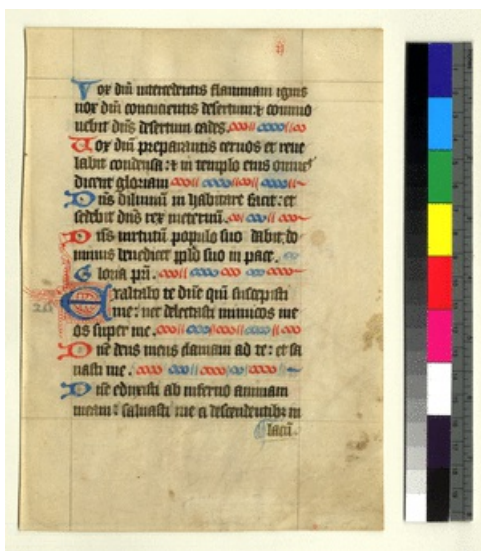 Vox dni intercedentis flammam ignis
uox dni concucientis desertum: & commo
uebit dns desertum cades.
Vox dni preparantis ceruos et reue
labit condensa: & in templo eius omnes
dicent gloriam
Dns diluuium in habitare facit: et
sedebit dns rex ineternum.
Dns uirtutum populo suo dabit: do
minus benedicet pplo suo in pace.
Gloria pri.
Exaltabo te dne qm suscepisti
me: nec delectasti inimicos me
os super me.
Dne deus meus clamaui ad te: et sa
nasti me.
Dne eduxisti ab inferno animam
meam: saluasti me a descendentibz in
lacu.